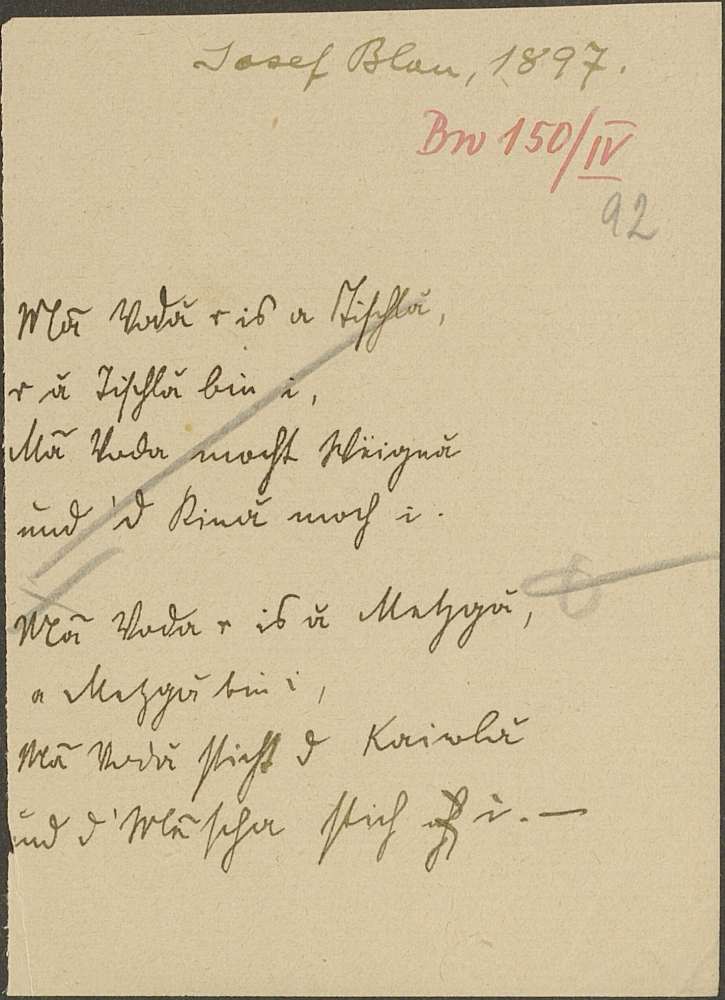 Josef Blau, 1897.
Bw 150/IV
92
Mā Vodă r is a Tischlă,
r ă Tischlă bin i,
Mā Voda mocht Wëignă
und 'd Kină moch i.
Mā Voda r is ă Metzgă,
a Metzgă bin i,
Mā Vodă sticht d Kaiwlă
und d' Mēscha stich i. —